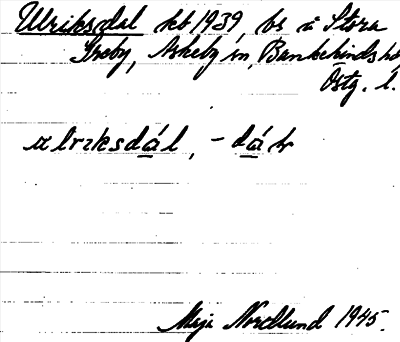 Ulriksdal kb 1939, bs i Stora
Greby, Askeby sn, Bankekinds hd
Östg. l.
ulrɪksdál, -dáɦ
Maja Nordlund 1945.